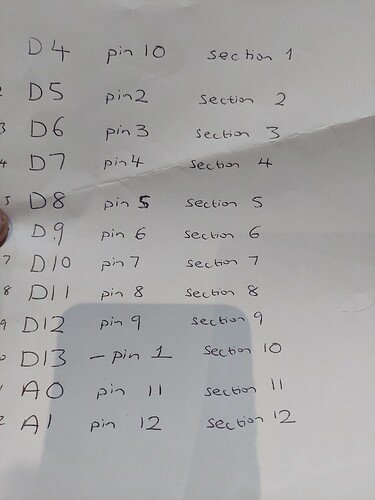 D4 pin 10 section 1
2 D5 pin2 section 2
3 D6 pin3 section 3
4 D7 pin4 section 4
5 D8 pin 5 section 5
D9 pin 6 section 6
7 D10 pin 7 section 7
8 D11 pin 8 section 8
9 D12 pin 9 section 9
0 D13 - pin 1 section 10
1 A0 pin 11 section 11
2 A1 pin 12 section 12